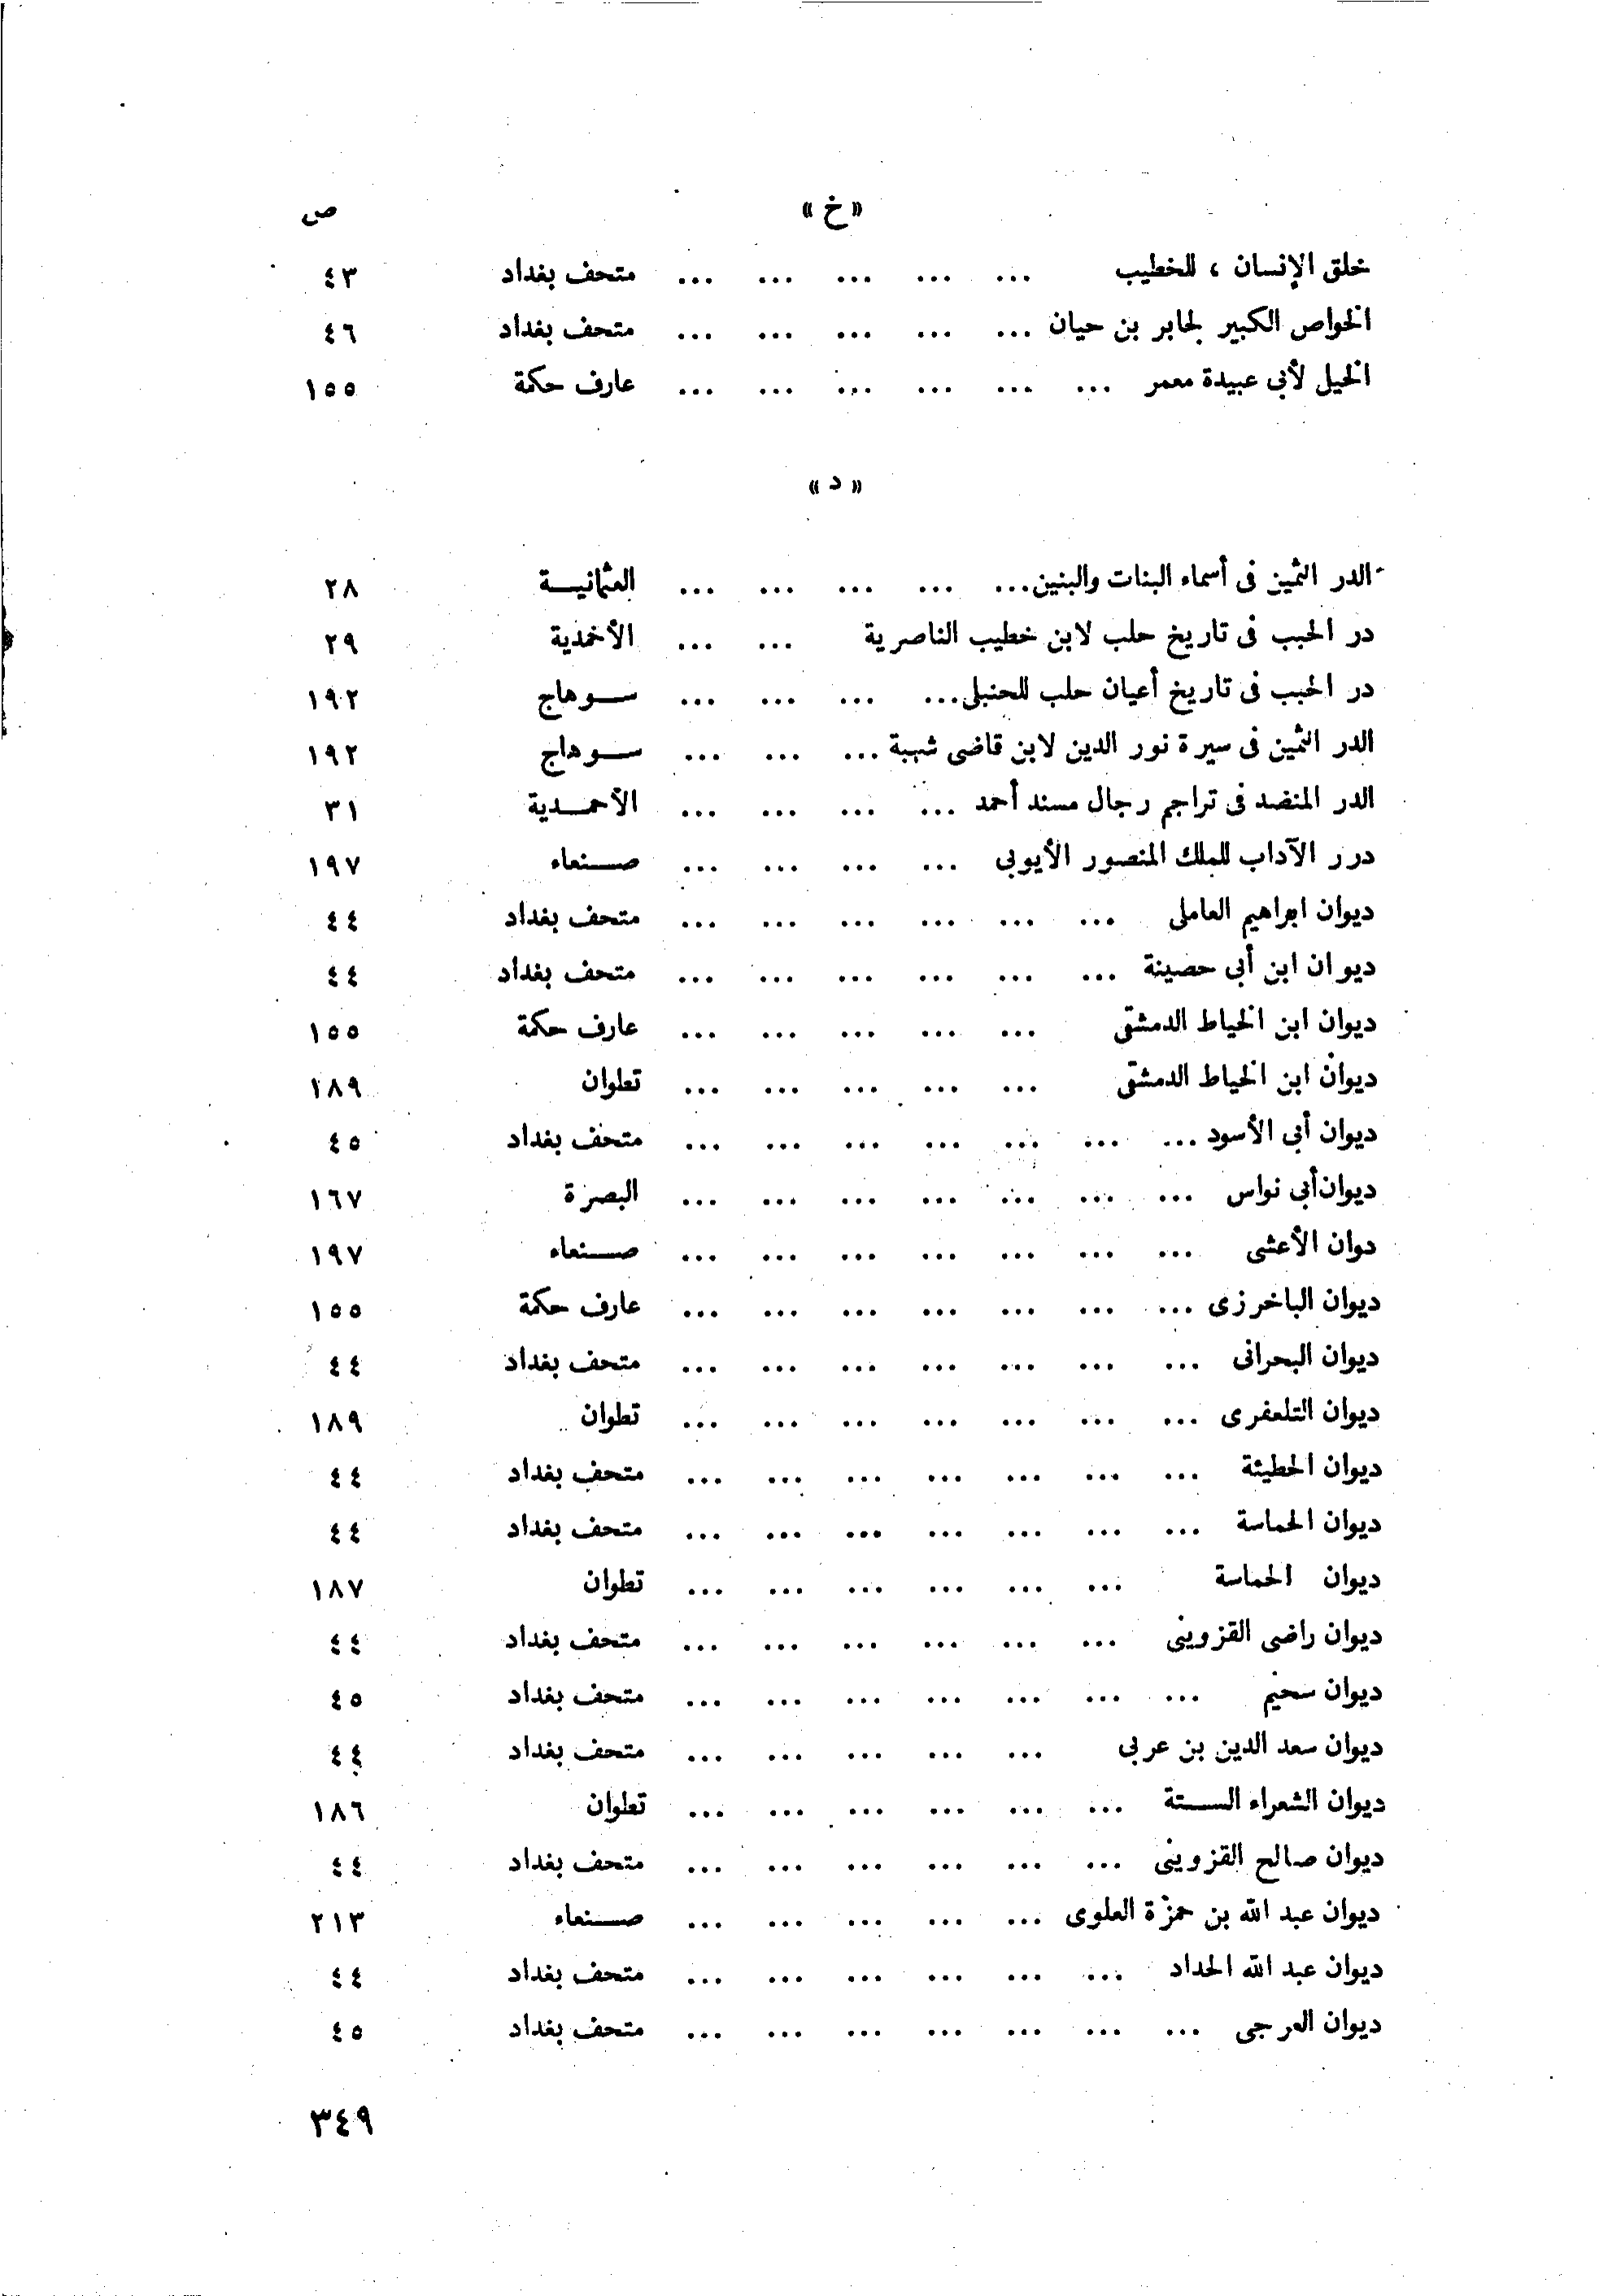 «خ» ص
خلق الإنسان ، للخطيب ... ... ... ... ... متحف بغداد ٤٣
الخواص الكبير لجابر بن حيان ... ... ... ... ... متحف بغداد ٤٦
الخيل لأبى عبيدة معمر ... ... ... ... ... ... عارف حكمة ١٥٥
«د»
الدر الثمين فى أسماء البنات والبنين... ... ... ... ... العثمانيــة ٢٨
در الحبب فى تاريخ حلب لابن خطيب الناصرية ... ... الأحمدية ٢٩
در الحبب فى تاريخ أعيان حلب للحنبلى... ... ... ... ســوهاج ١٩٢
الدر الثمين فى سيرة نور الدين لابن قاضى شهبة ... ... ... ســوهاج ١٩٢
الدر المنضد فى تراجم رجال مسند أحمد ... ... ... ... الأحمــدية ٣١
درر الآداب للملك المنصور الأيوبى ... ... ... ... صــنعاء ١٩٧
ديوان ابراهيم العاملى ... ... ... ... ... ... متحف بغداد ٤٤
ديوان ابن أبى حصينة ... ... ... ... ... ... متحف بغداد ٤٤
ديوان ابن الخياط الدمشقى ... ... ... ... ... عارف حكمة ١٥٥
ديوان ابن الخياط الدمشقى ... ... ... ... ... تطوان ١٨٩
ديوان أبى الأسود ... ... ... ... ... ... ... متحف بغداد ٤٥
ديوان أبى نواس ... ... ... ... ... ... ... البصرة ١٦٧
دوان الأعشى ... ... ... ... ... ... ... صــنعاء ١٩٧
ديوان الباخرزى ... ... ... ... ... ... ... عارف حكمة ١٥٥
ديوان البحرانى ... ... ... ... ... ... ... متحف بغداد ٤٤
ديوان التلعفرى ... ... ... ... ... ... ... تطوان ١٨٩
ديوان الحطيئة ... ... ... ... ... ... ... متحف بغداد ٤٤
ديوان الحماسة ... ... ... ... ... ... ... متحف بغداد ٤٤
ديوان الحماسة ... ... ... ... ... ... تطوان ١٨٧
ديوان راضى القزوينى ... ... ... ... ... ... متحف بغداد ٤٤
ديوان سحيم ... ... ... ... ... ... ... متحف بغداد ٤٥
ديوان سعد الدين بن عربى ... ... ... ... ... متحف بغداد ٤٤
ديوان الشعراء الســتة ... ... ... ... ... ... تطوان ١٨٦
ديوان صالح القزوينى ... ... ... ... ... ... متحف بغداد ٤٤
ديوان عبد الله بن حمزة العلوى ... ... ... ... ... صــنعاء ٢١٣
ديوان عبد الله الحداد ... ... ... ... ... ... متحف بغداد ٤٤
ديوان العرجى ... ... ... ... ... ... ... متحف بغداد ٤٥
٣٤٩